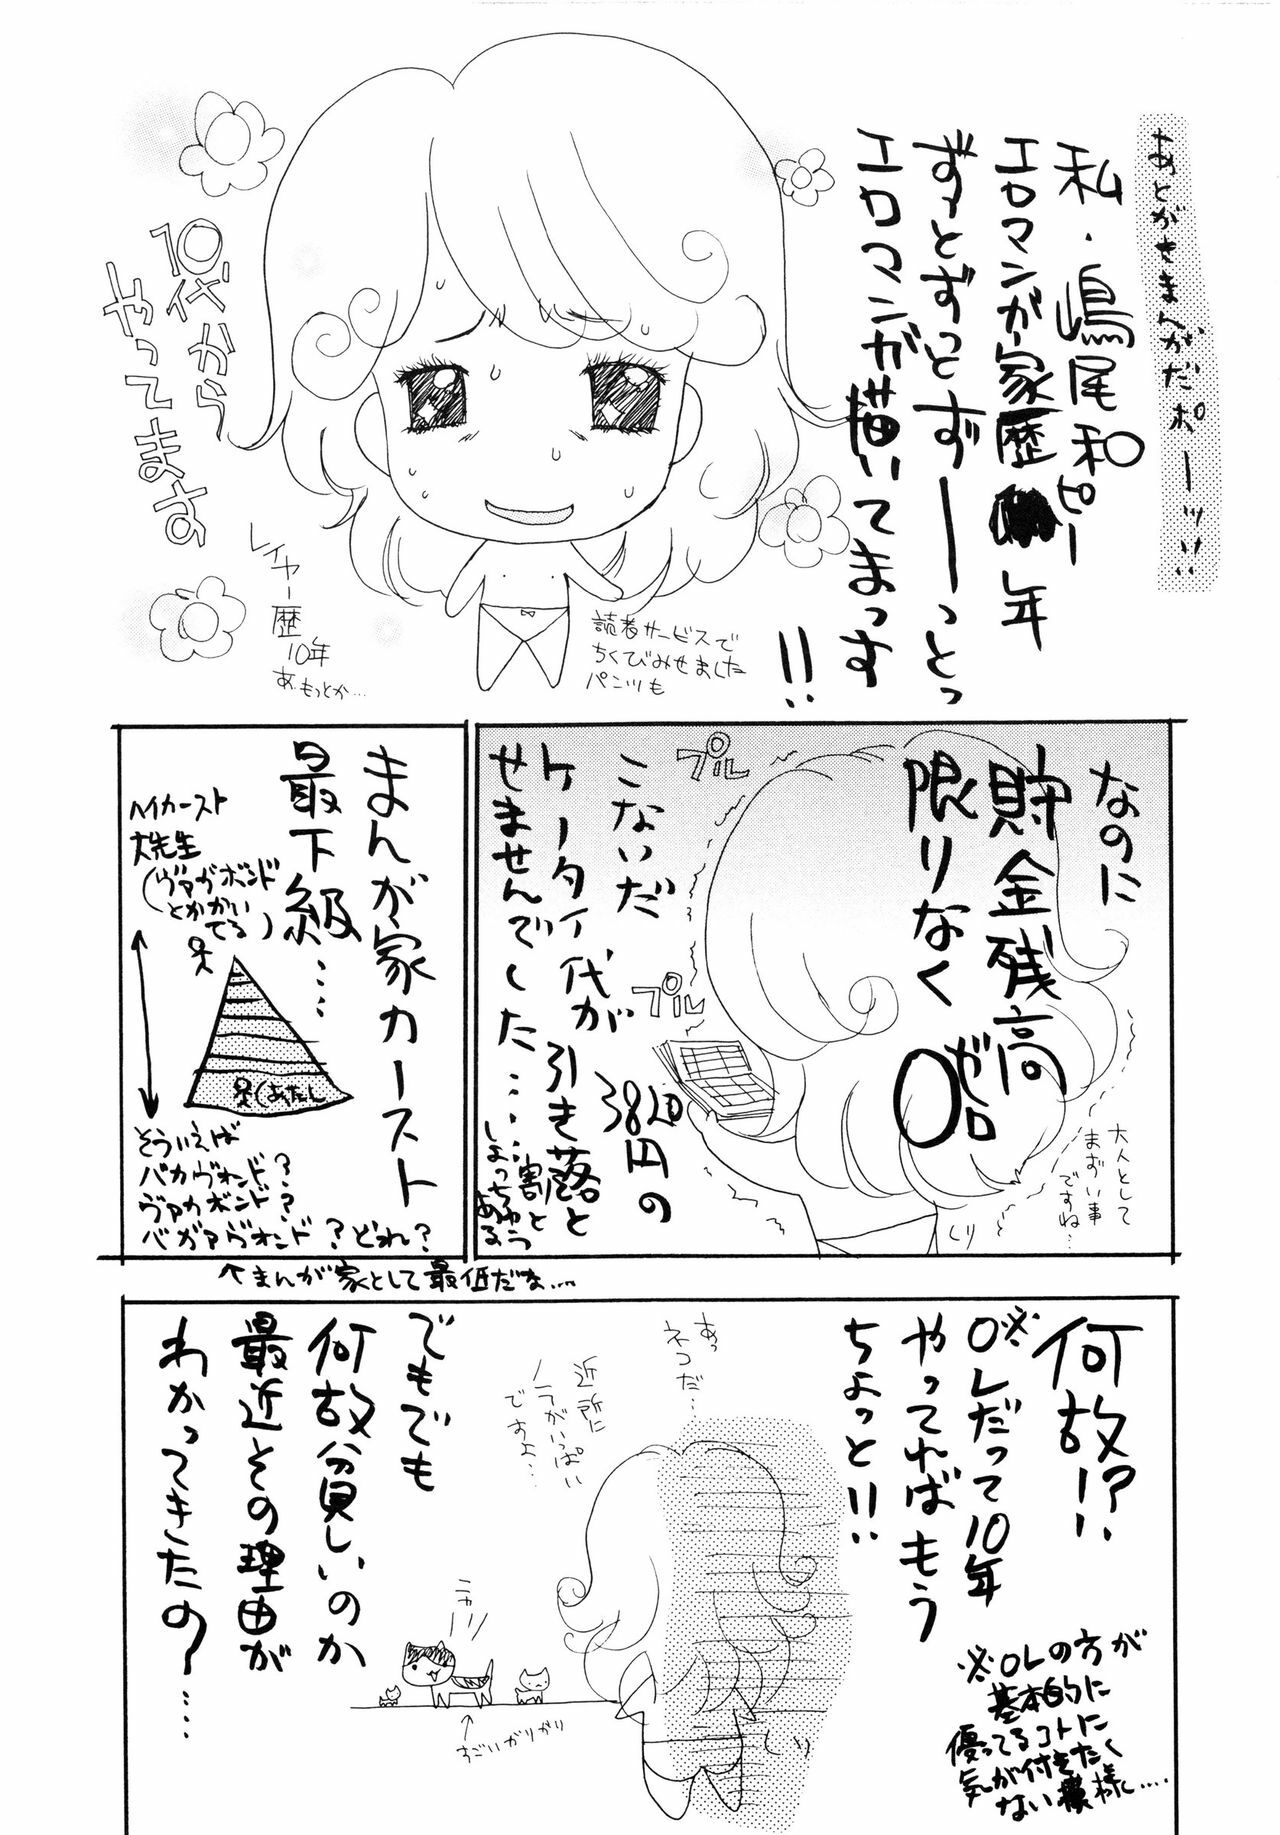 あとがきまんがだポーッ!!!
私・嶋尾和ピー
エロマンガ家歴 年
ずっとずっとずーーっとっ
エロマンガ描いてまっす
!!
10代から
やってます
レイヤー歴
10年
あ、もっとか…
読者サービスで
ちくびみせました
パンツも
なのに
貯金残高
限りなく
0
ゼロ
プル
プル
こないだ
ケータイ代が
3820円の
引き落と
せませんでした……
割と
しょっちゅう
ある
大人として
まずい事
ですね…
まんが家カースト
最下級…
ハイカースト
大先生
(ヴァガボンド
とかかい
てる)
(あたし
そういえば
バカヴォンド?
ヴァカボンド?
バガァヴォンド?どれ?
↑まんが家として最低だな…
何故!?
※OLだって10年
やってればもう
ちょっと!!
※OLの方が
基本的に
優ってるコトに
気が付きたく
ない模様…
あっ
ネコだ…
近所に
ノラがいっぱい
ですよ…
でもでも
何故貧しいのか
最近その理由が
わかってきたの……
ニカッ
すごいがりがり